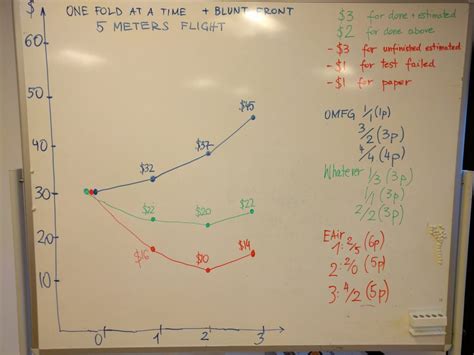 $ ONE FOLD AT A TIME + BLUNT FRONT
5 METERS FLIGHT
60
50
40
30
20
10
0 1 2 3
$32
$37
$45
$23
$20
$22
$16
$10
$14
$3 for done + estimated
$2 for done above
-$3 for unfinished estimated
-$1 for test failed
-$1 for paper
OMFG 1/1 (1p)
3/2 (3p)
4/4 (4p)
Whatever 1/3 (3p)
1/1 (3p)
2/2 (3p)
EAir
1: 2/5 (6p)
2: 2/0 (5p)
3: 4/2 (5p)